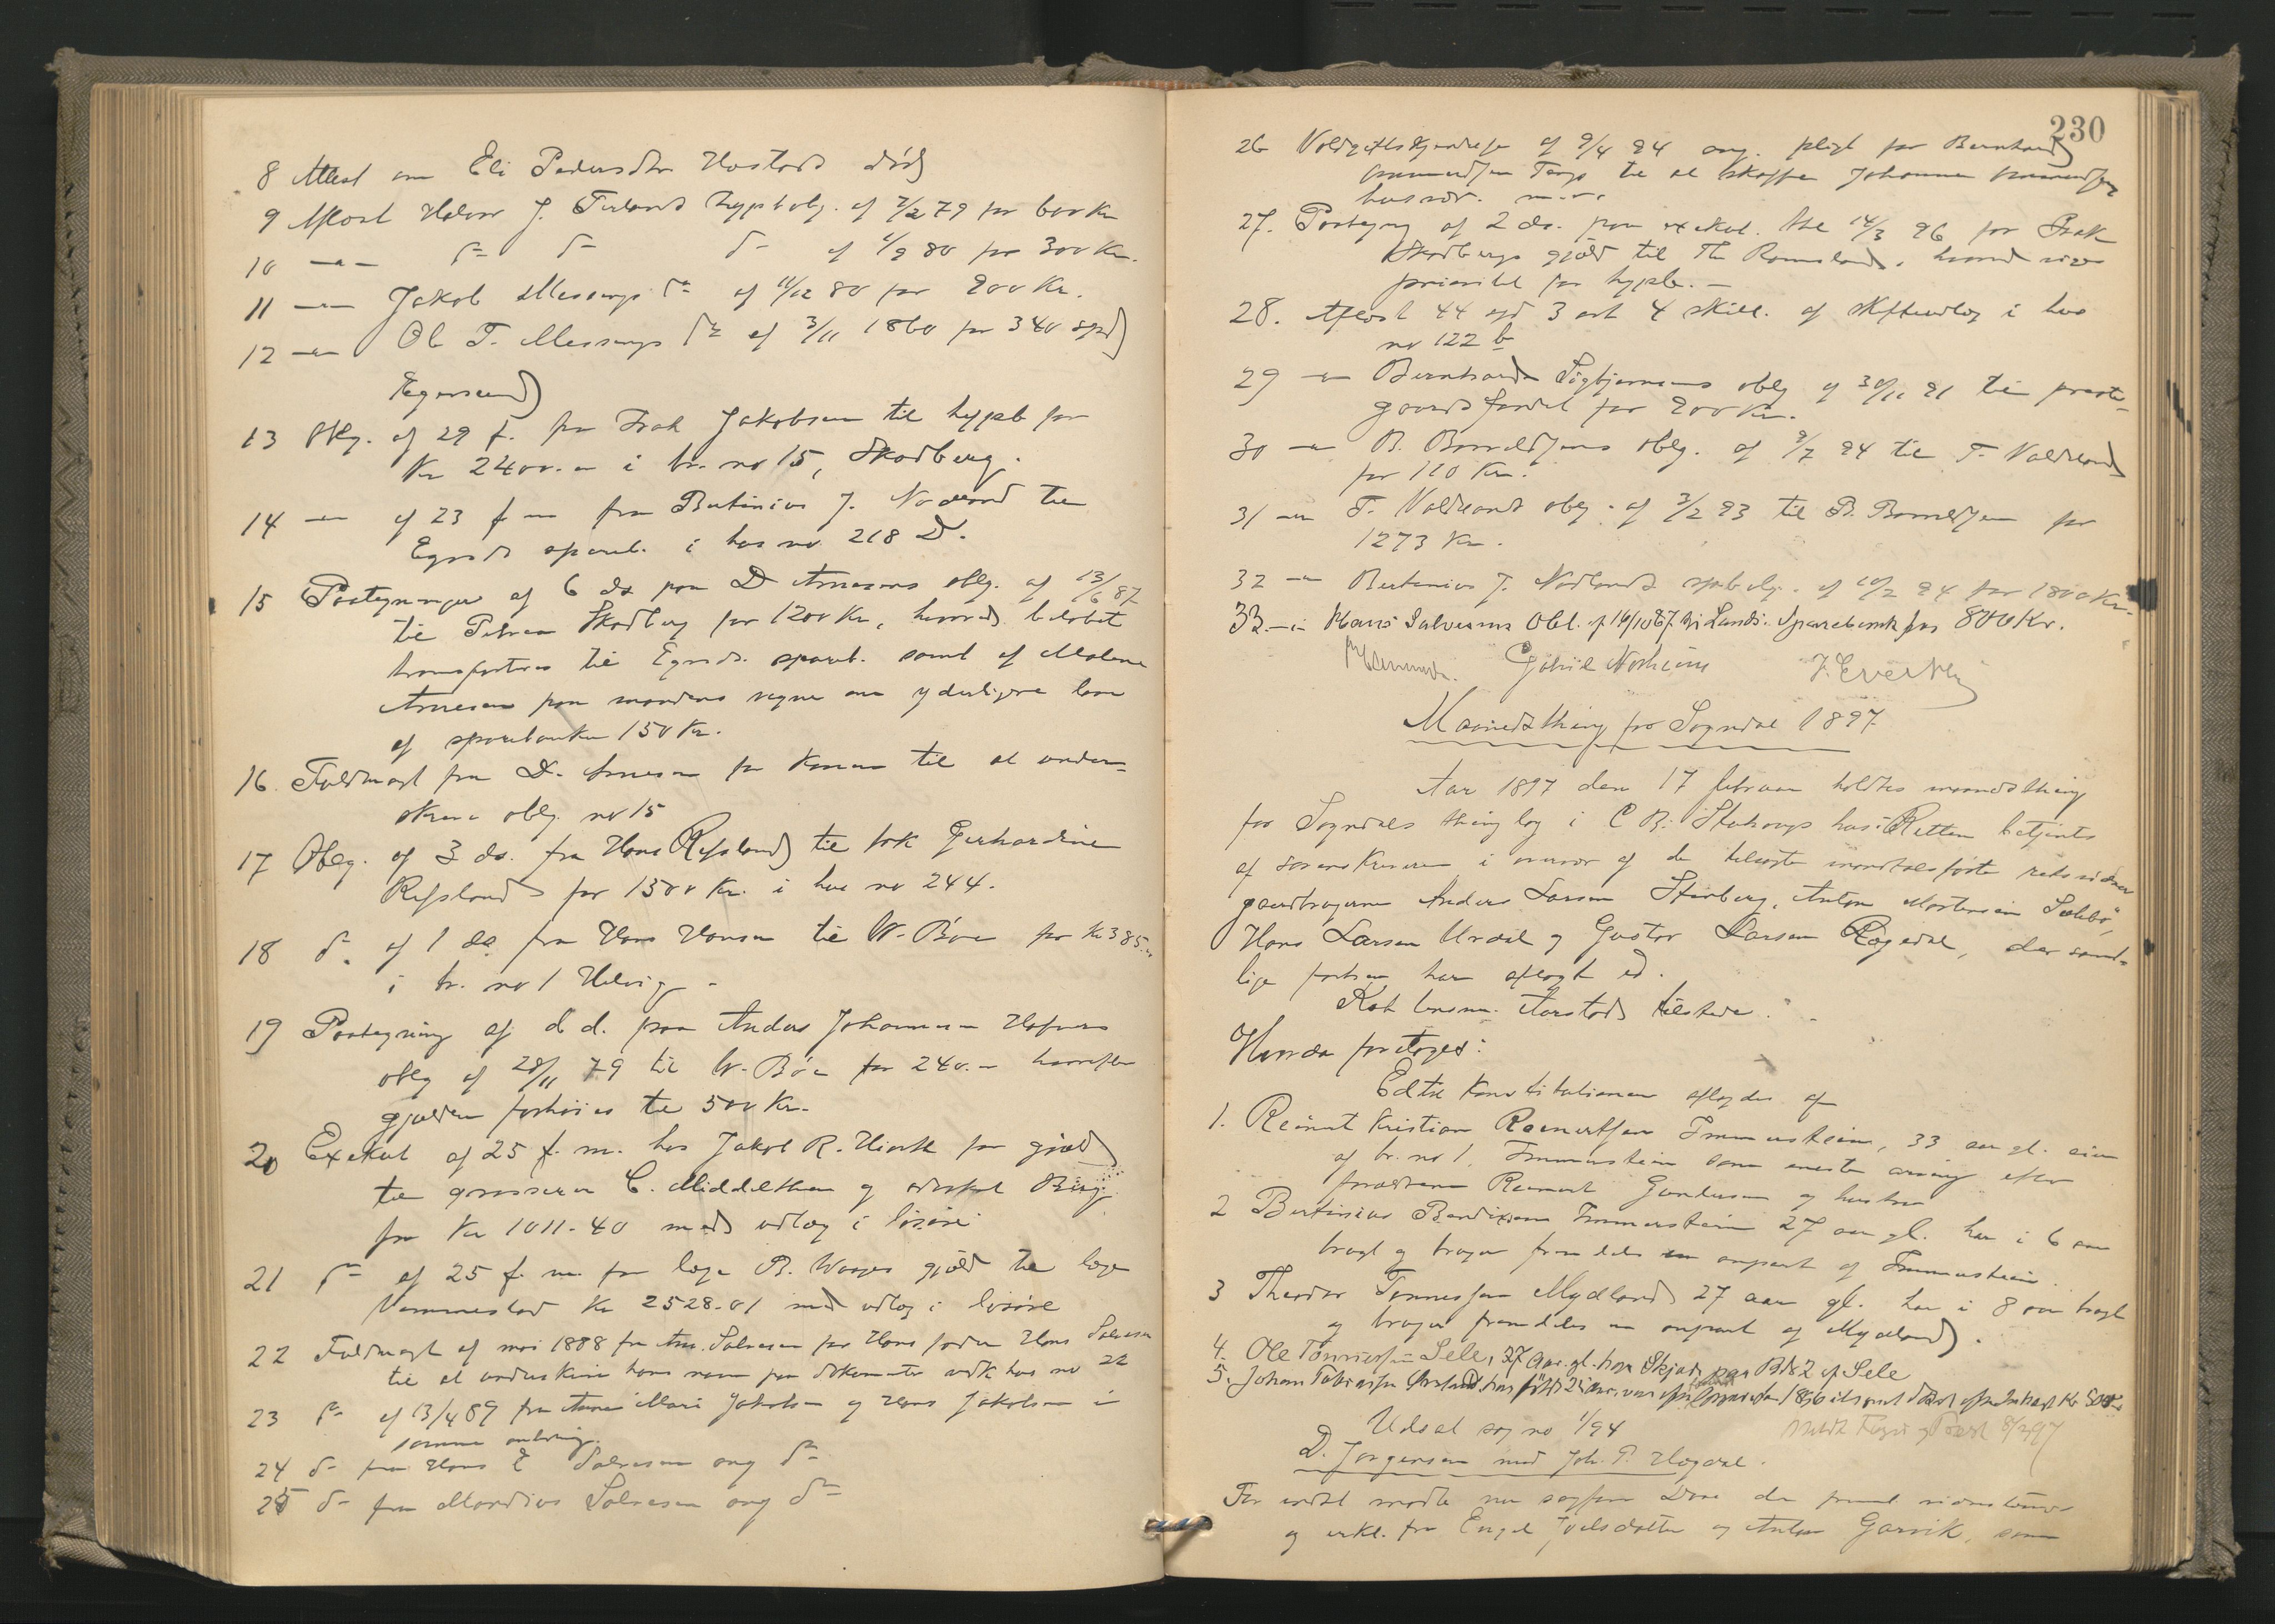 8 Attest om Eli Pedersdtr Hostad død
9 Aflost Halvor J. Furland hypb obl. af 7/2 79 for 600 Kr
10 — " — do do do af 1/9 80 for 300 Kr.
11 — " — Jakob Messings do af 11/12 80 for 800 Kr.
12 — " — Ole T. Messings do af 3/11 1860 for 340 spd
Egersund
13 Oblg. af 29 f. fra Isak Jakobsen til hypb for
Kr 2400.- i br. no 15, Skadberg.
14 — " — af 23 f m fra Bertinius J. Nodland til
Egrsds spareb. i hus no. 218 D.
15 Paategninger af 6 ds paa D Arnesens oblg. af 13/6 87
til Petrea Skadberg for 1200 Kr, hvorved beløbet
transporteres til Egrsds. spareb. samt af Malene
Arnesen paa mandens vegne om yderligere laan
af sparebanken 150 Kr.
16 Fuldmagt fra D. Arnesen for konen til at under-
skrive oblg. no 15
17 Oblg. af 3 ds. fra Hans Refsland til frk Gerhardine
Refsland for 1500 Kr. i hus no 244.
18 do af 1 ds fra Hans Hansen til W. Böe for Kr 385.-
i br. no 1 Helvig -
19 Paategning af d d. paa Anders Johannesen Hafsøes
oblg af 28/11 79 til W. Böe for 240.- hvorefter
gjælden forhøies til 500 Kr.
20 Exekut af 25 f. m. hos Jakob R. Hierth for gjæld
til grosserer C. Middelthon og
for Kr 1011.40 med udlæg i løsøre
21 do af 25 f. m. for læge B. Waages gjæld til læge
Vemmestad Kr 2528.01 med udlæg i løsøre
22 Fuldmagt af mai 1888 fra Salvesen for Hans fader Hans Salvesen
til at underskrive hans navn paa dokumenter vedk hus no 22
23 do af 13/4 89 fra Anne Mari Jakobsen og Hans Jakobsen i
samme anledning.
24 do fra Hans E Salvesen ang do
25 do fra Mardius Salvesen ang do
230
26 Voldgiftskjendelse af 9/4 94 ang. pligt for Bernhard
til at skaffe Johanne
husvær. m.v.
27. Paategng af 2 ds. paa exekut. 14/3 96 for Isak
Skadbergs gjæld til Th Ramsland, hvorved vises
prioritet for hypb. —
28. Aflöst 44 spd 3 ort 4 skill. af skifteudlæg i hus
no 122 b
29 — " — Bernhard Sigbjørnsens oblg af 30/11 91 til preste-
gaards fondet for 800 Kr.
30 — " — B. oblg. af 9/7 94 til T. Valdeland
for 110 Kr.
31 — " — T. Valdelands oblg. af 3/2 93 til B. for
1273 Kr.
32 — " — Bertinius J. Nodlands oblg. af 10/2 94 for 1800 Kr.
33 — " — Hans Salvesens Obl. af 16/10 87 til Lands. Sparebank for 800 Kr.
Gabriel Nordheim J. Evertsen
Maanedsthing for Sogndal 1897
Aar 1897 den 17 februar holdtes maanedsthing
for Sogndals thinglag i C B. hus. Retten betjentes
af sorenskriveren i overvær af de tilsagte mandtalsførte retsvidner
gaardbrugerne Anders Larsen Stenberg, Anton Mortensen Salebø,
Hans Larsen Urdal og Gustav Larsen Rægedal, der samt-
lige forhen har aflagt ed.
Kst. lensm. Aarstad tilstede.
Hvorda foretoges:
Ed til konstitutionen aflagdes af
1. Reinert Kristian Reinertsen Immerstein, 33 aar gl. eier
af br. no 1, Immerstein som eneste arving efter
forældrene Reinert Gundersen og hustru
2 Bertinius Berdinesen Immerstein 27 aar gl. har i 6 aar
brugt og bruger fremdeles en anpart af Immerstein.
3 Theodor Tønnessen Mydland 27 aar gl. har i 8 aar brugt
og bruger fremdeles en anpart af Mydland.
4. Ole Tønnessen Sele, 37 Aar gl. har Skjøde paa B№ 2 af Sele
5. Johan Tobiassen fyldt 25 Aar,
Udsat sag no 1/94
D. Jørgensen mod Joh. P. Hogdal.
For endel mødte nu sagfører Dare der freml
og erkl. fra Engel og Anton Garvik, som